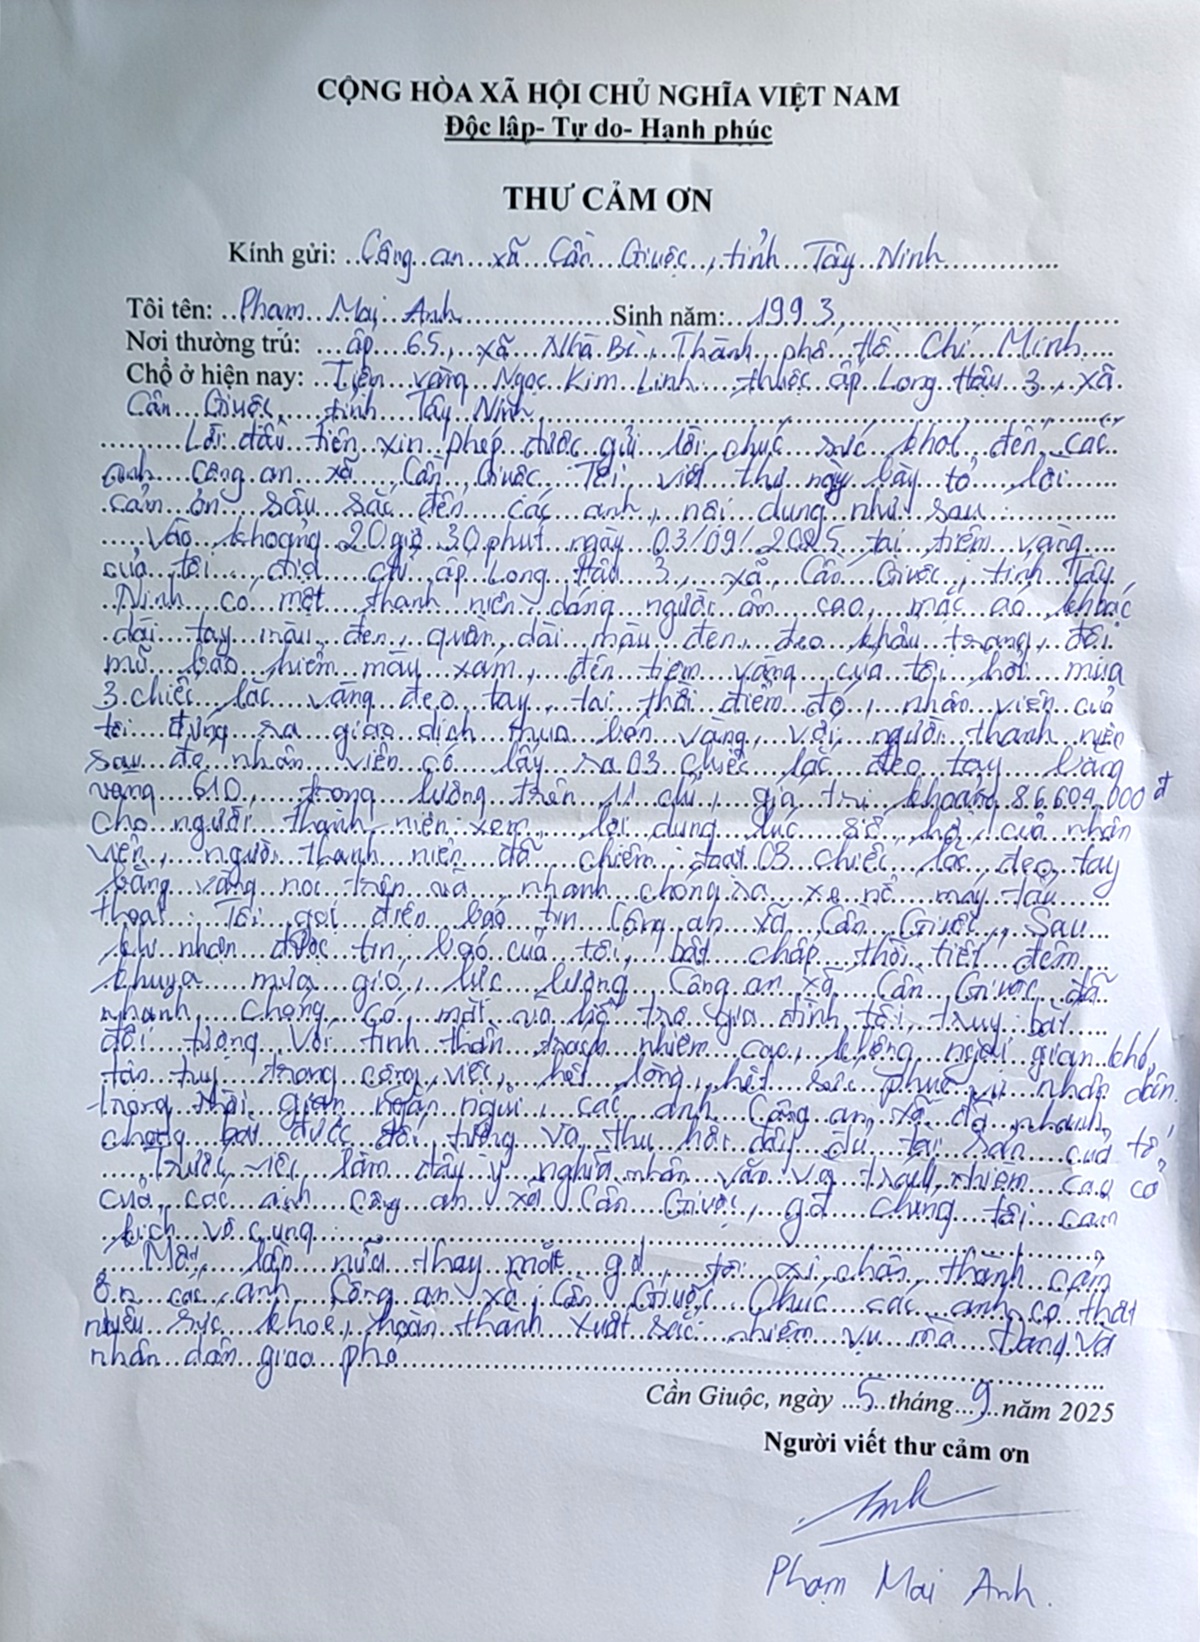 CỘNG HÒA XÃ HỘI CHỦ NGHĨA VIỆT NAM
Độc lập- Tự do- Hạnh phúc
THƯ CẢM ƠN
Kính gửi: Công an xã Cần Giuộc, tỉnh Tây Ninh
Tôi tên: Phạm Mai Anh Sinh năm: 1993
Nơi thường trú: ấp 65, xã Nhà Bè, Thành phố Hồ Chí Minh
Chổ ở hiện nay: Tiệm vàng Ngọc Kim Linh thuộc ấp Long Hậu 3, xã
Cần Giuộc, tỉnh Tây Ninh
Lời đầu tiên xin phép được gửi lời chúc sức khoẻ đến các
anh Công an xã Cần Giuộc. Tôi viết thư này bày tỏ lời
cảm ơn sâu sắc đến các anh, nội dung như sau
Vào khoảng 20 giờ 30 phút ngày 03/09/2025 tại tiệm vàng
của tôi, địa chỉ ấp Long Hậu 3, xã Cần Giuộc, tỉnh Tây
Ninh có một thanh niên dáng người ốm cao, mặc áo khoác
dài tay màu đen, quần dài màu đen, đeo khẩu trang, đội
mũ bảo hiểm màu xám, đến tiệm vàng của tôi hỏi mua
3 chiếc lắc vàng đeo tay, tại thời điểm đó, nhân viên của
tôi đứng ra giao dịch mua bán vàng, với người thanh niên
sau đó nhân viên có lấy ra 03 chiếc lắc đeo tay bằng
vàng 610, trọng lượng trên 11 chỉ, giá trị khoảng 86.604.000đ
cho người thanh niên xem, lợi dụng lúc sơ hở của nhân
viên, người thanh niên đã chiếm đoạt 03 chiếc lắc đeo tay
bằng vàng nói trên và nhanh chóng ra xe nổ máy tẩu
thoát. Tôi gọi điện báo tin Công an xã Cần Giuộc, Sau
khi nhận được tin báo của tôi, bất chấp thời tiết đêm
khuya mưa gió, lực lượng Công an xã Cần Giuộc đã
nhanh chóng có mặt và hỗ trợ gia đình tôi, truy bắt
đối tượng với tinh thần trách nhiệm cao, không ngại gian khó,
tận tụy trong công việc, hết lòng, hết sức phục vụ nhân dân.
Trong thời gian ngắn ngủi, các anh Công an xã đã nhanh
chóng bắt được đối tượng và thu hồi đầy đủ tài sản của tôi
Trước việc làm đầy ý nghĩa nhân văn và trách nhiệm cao cả
của các anh Công an xã Cần Giuộc, gđ chúng tôi cảm
kích vô cùng
Một lần nữa thay mặt gđ, tôi xi chân thành cảm
ơn các anh Công an xã Cần Giuộc. Chúc các anh có thật
nhiều sức khoẻ, hoàn thành xuất sắc nhiệm vụ mà Đảng và
nhân dân giao phó
Cần Giuộc, ngày 5 tháng 9 năm 2025
Người viết thư cảm ơn
Phạm Mai Anh.